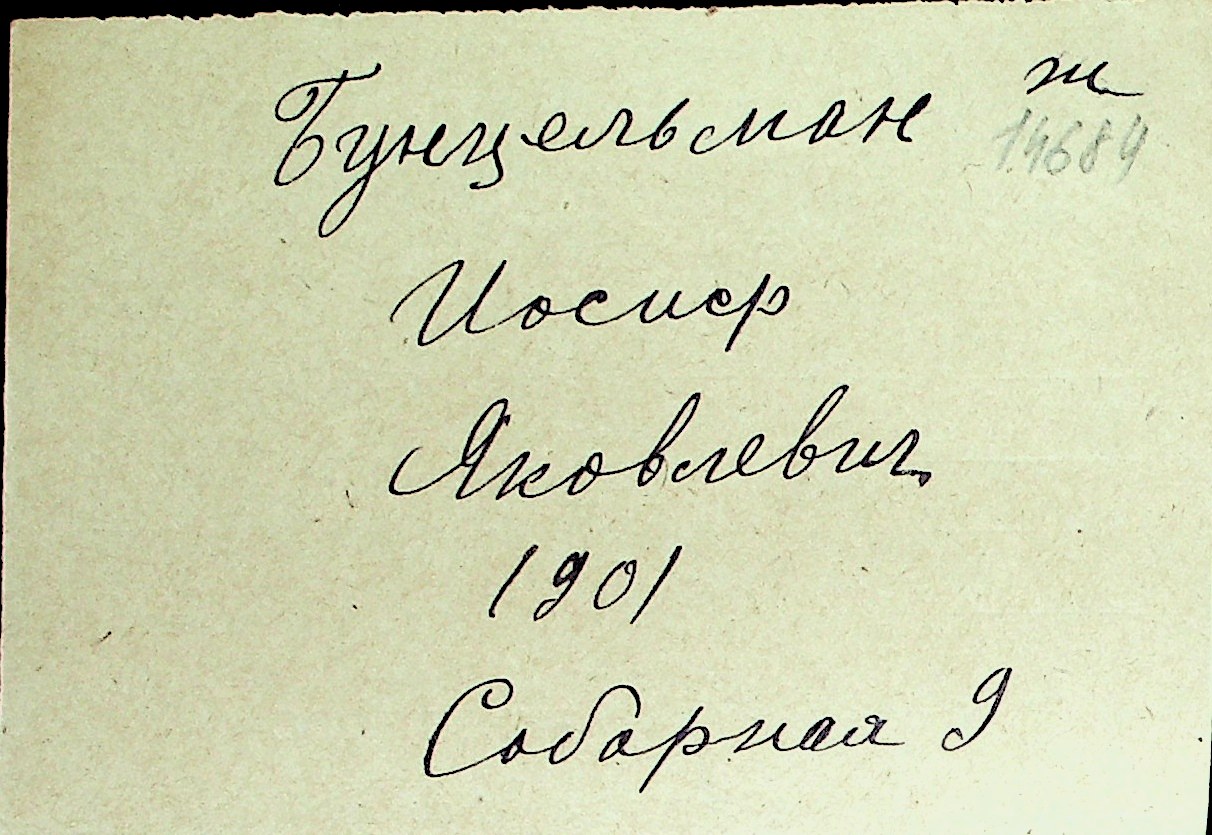 Бунцельман ж
14684
Иосиф
Яковлевич
1901
Соборная 9